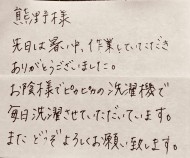 熊野様
先日は暑い中、作業していただき
ありがとうございました。
お陰様でピカピカの洗濯機で
毎日洗濯させていただいています。
またどうぞよろしくお願い致します。